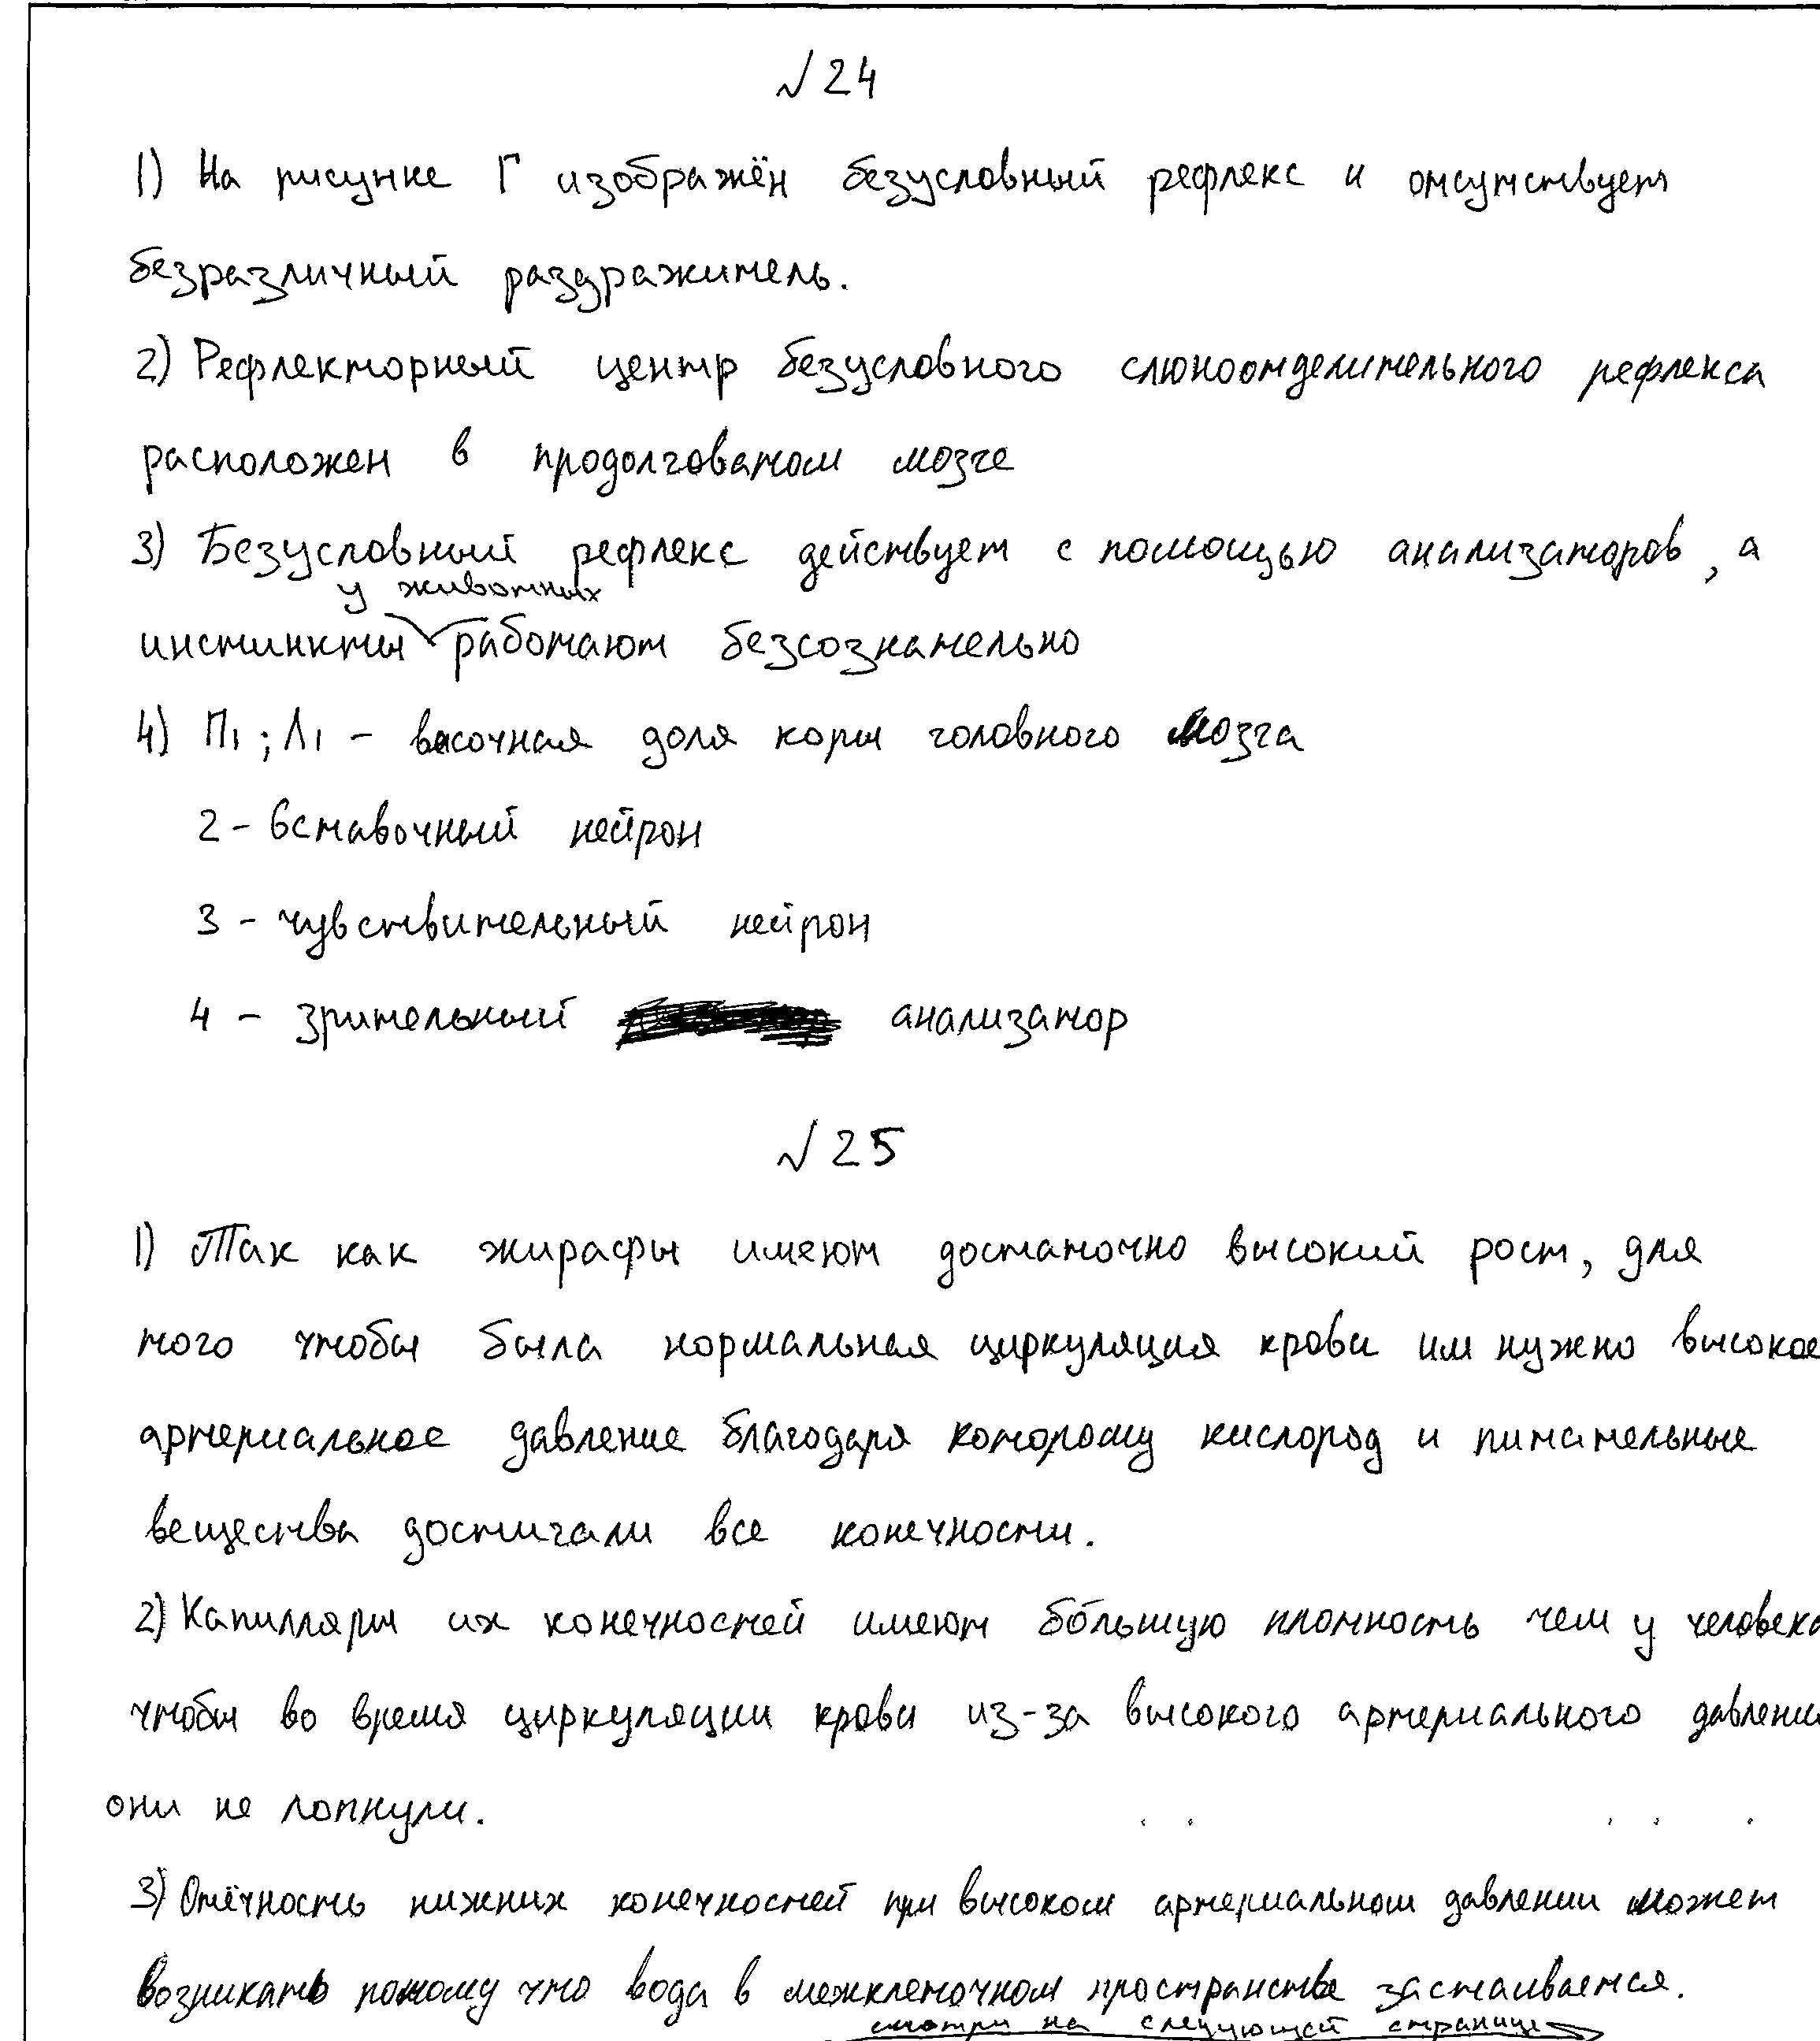 √24
1) На рисунке Г изображён безусловный рефлекс и отсутствует
безразличный раздражитель.
2) Рефлекторный центр безусловного слюноотделительного рефлекса
расположен в продолговатом мозге
3) Безусловный рефлекс действует с помощью анализаторов, а
инстинкты у животных работают безсознательно
4) П1; Л1 - височная доля коры головного мозга
2 - вставочный нейрон
3 - чувствительный нейрон
4 - зрительный анализатор
√25
1) Так как жирафы имеют достаточно высокий рост, для
того чтобы была нормальная циркуляция крови им нужно высокое
артериальное давление благодаря которому кислород и питательные
вещества достигали все конечности.
2) Капилляры их конечностей имеют бóльшую плотность чем у человека
чтобы во время циркуляции крови из-за высокого артериального давления
они не лопнули.
3) Отёчность нижних конечностей при высоком артериальном давлении может
возникать потому что вода в межклеточном пространстве застаивается.
смотри на следующей странице